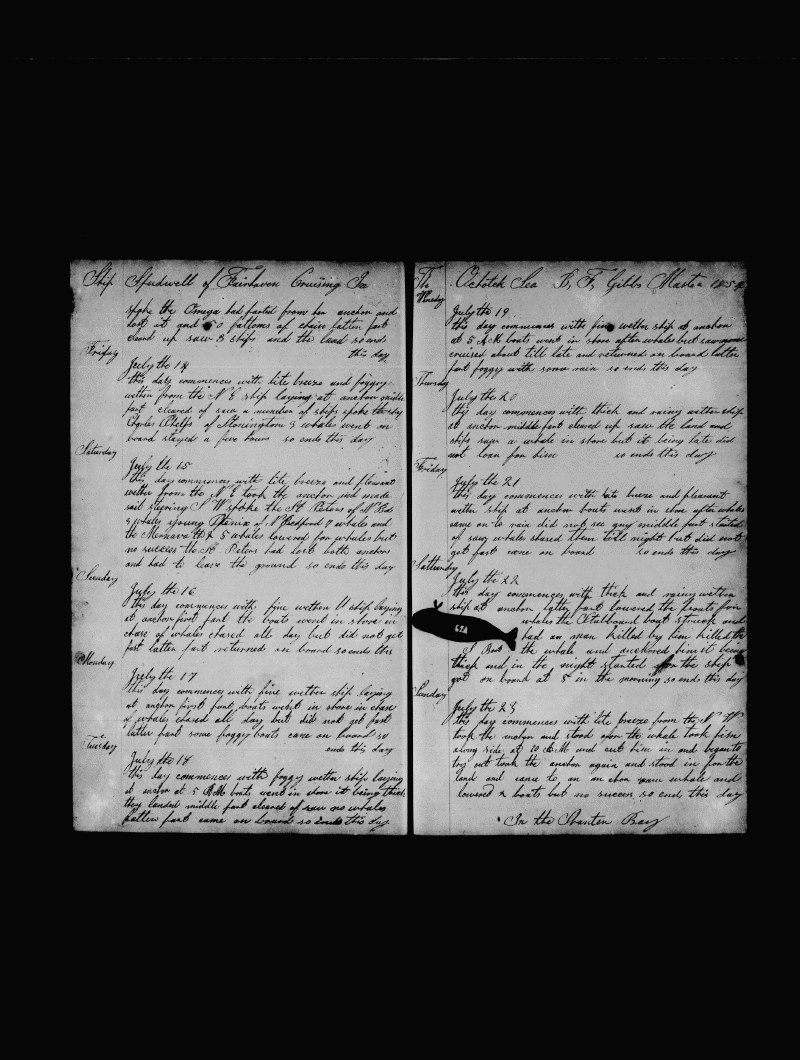 Ship Speedwell of Fairhaven Cruising In
spoke the Omega had parted from her anchor and
lost it and 50 fattoms of chain latter part
cleard up saw 8 ships and the land so ends
this day
Friday
July the 14
this day commences with lite breeze and foggy
wether from the N E ship laying at anchor middle
part cleared of saw a number of ships spoke the ship
Charles Phelps of Stonington 3 whales went on
board stayed a few hours so ends this day
Saturday
July the 15
this day commences with lite breeze and pleasant
wether from the N E took the anchor and made
sail steering S W spoke the St Peters of N Bed
5 whales young Phenix of N Bedford 7 whales and
the 5 whales lowered for whales but
no success the St Peters had lost both anchors
and had to leave the ground so ends this day
Sunday
July the 16
this day commences with fine wether ship laying
at anchor first part the boats went in shore in
chase of whales chased all day but did not get
fast latter part returned on board so ends this
Monday
July the 17
this day commences with fine wether ship laying
at anchor first part boats went in shore in chase
of whales chased all day but did not get fast
latter part some foggy boats came on board so
ends this day
Tuesday
July the 18
this day commences with foggy wether ship laying
at anchor at 5 boats went in shore it being thick
they landed middle part cleared of saw no whales
latter part came on board so ends this day
The Ochotck Sea B. F. Gibbs Master 1854
Wensday
July the 19
this day commences with fine wether ship at anchor
at 5 A M boats went in shore after whales but saw none
cruised about till late and returned on board latter
part foggy with some rain so ends this day
Thursday
July the 20
this day commences with thick and rainy wether ship
at anchor middle part cleared up saw the land and
ships saw a whale in shore but it being late did
not loar for him so ends this day
Friday
July the 21
this day commences with lite breeze and pleasant
wether ship at anchor boats went in shoe after whales
came on to rain did not see any middle part started
of saw whales chased them till night but did not
get fast came on board so ends this day
Satturday
July the 22
this day commences with thick and rainy wether
ship at anchor latter part lowered the boats for
whales the Starboard boat struck and
had an man killed by him killed the
Boat the whale and anchored him it being
thick and in the night started for the ship
got on board at 5 in the morning so ends this day
Sunday
July the 23
this day commences with lite breeze from the N W
took the anchor and stood for the whale took him
along side at 10 A M and cut him in and began to
try out took the anchor again and stood in for the
land and came to an anchor saw whale and
lowered 2 boats but no success so ends this day
In the Shanter Bay